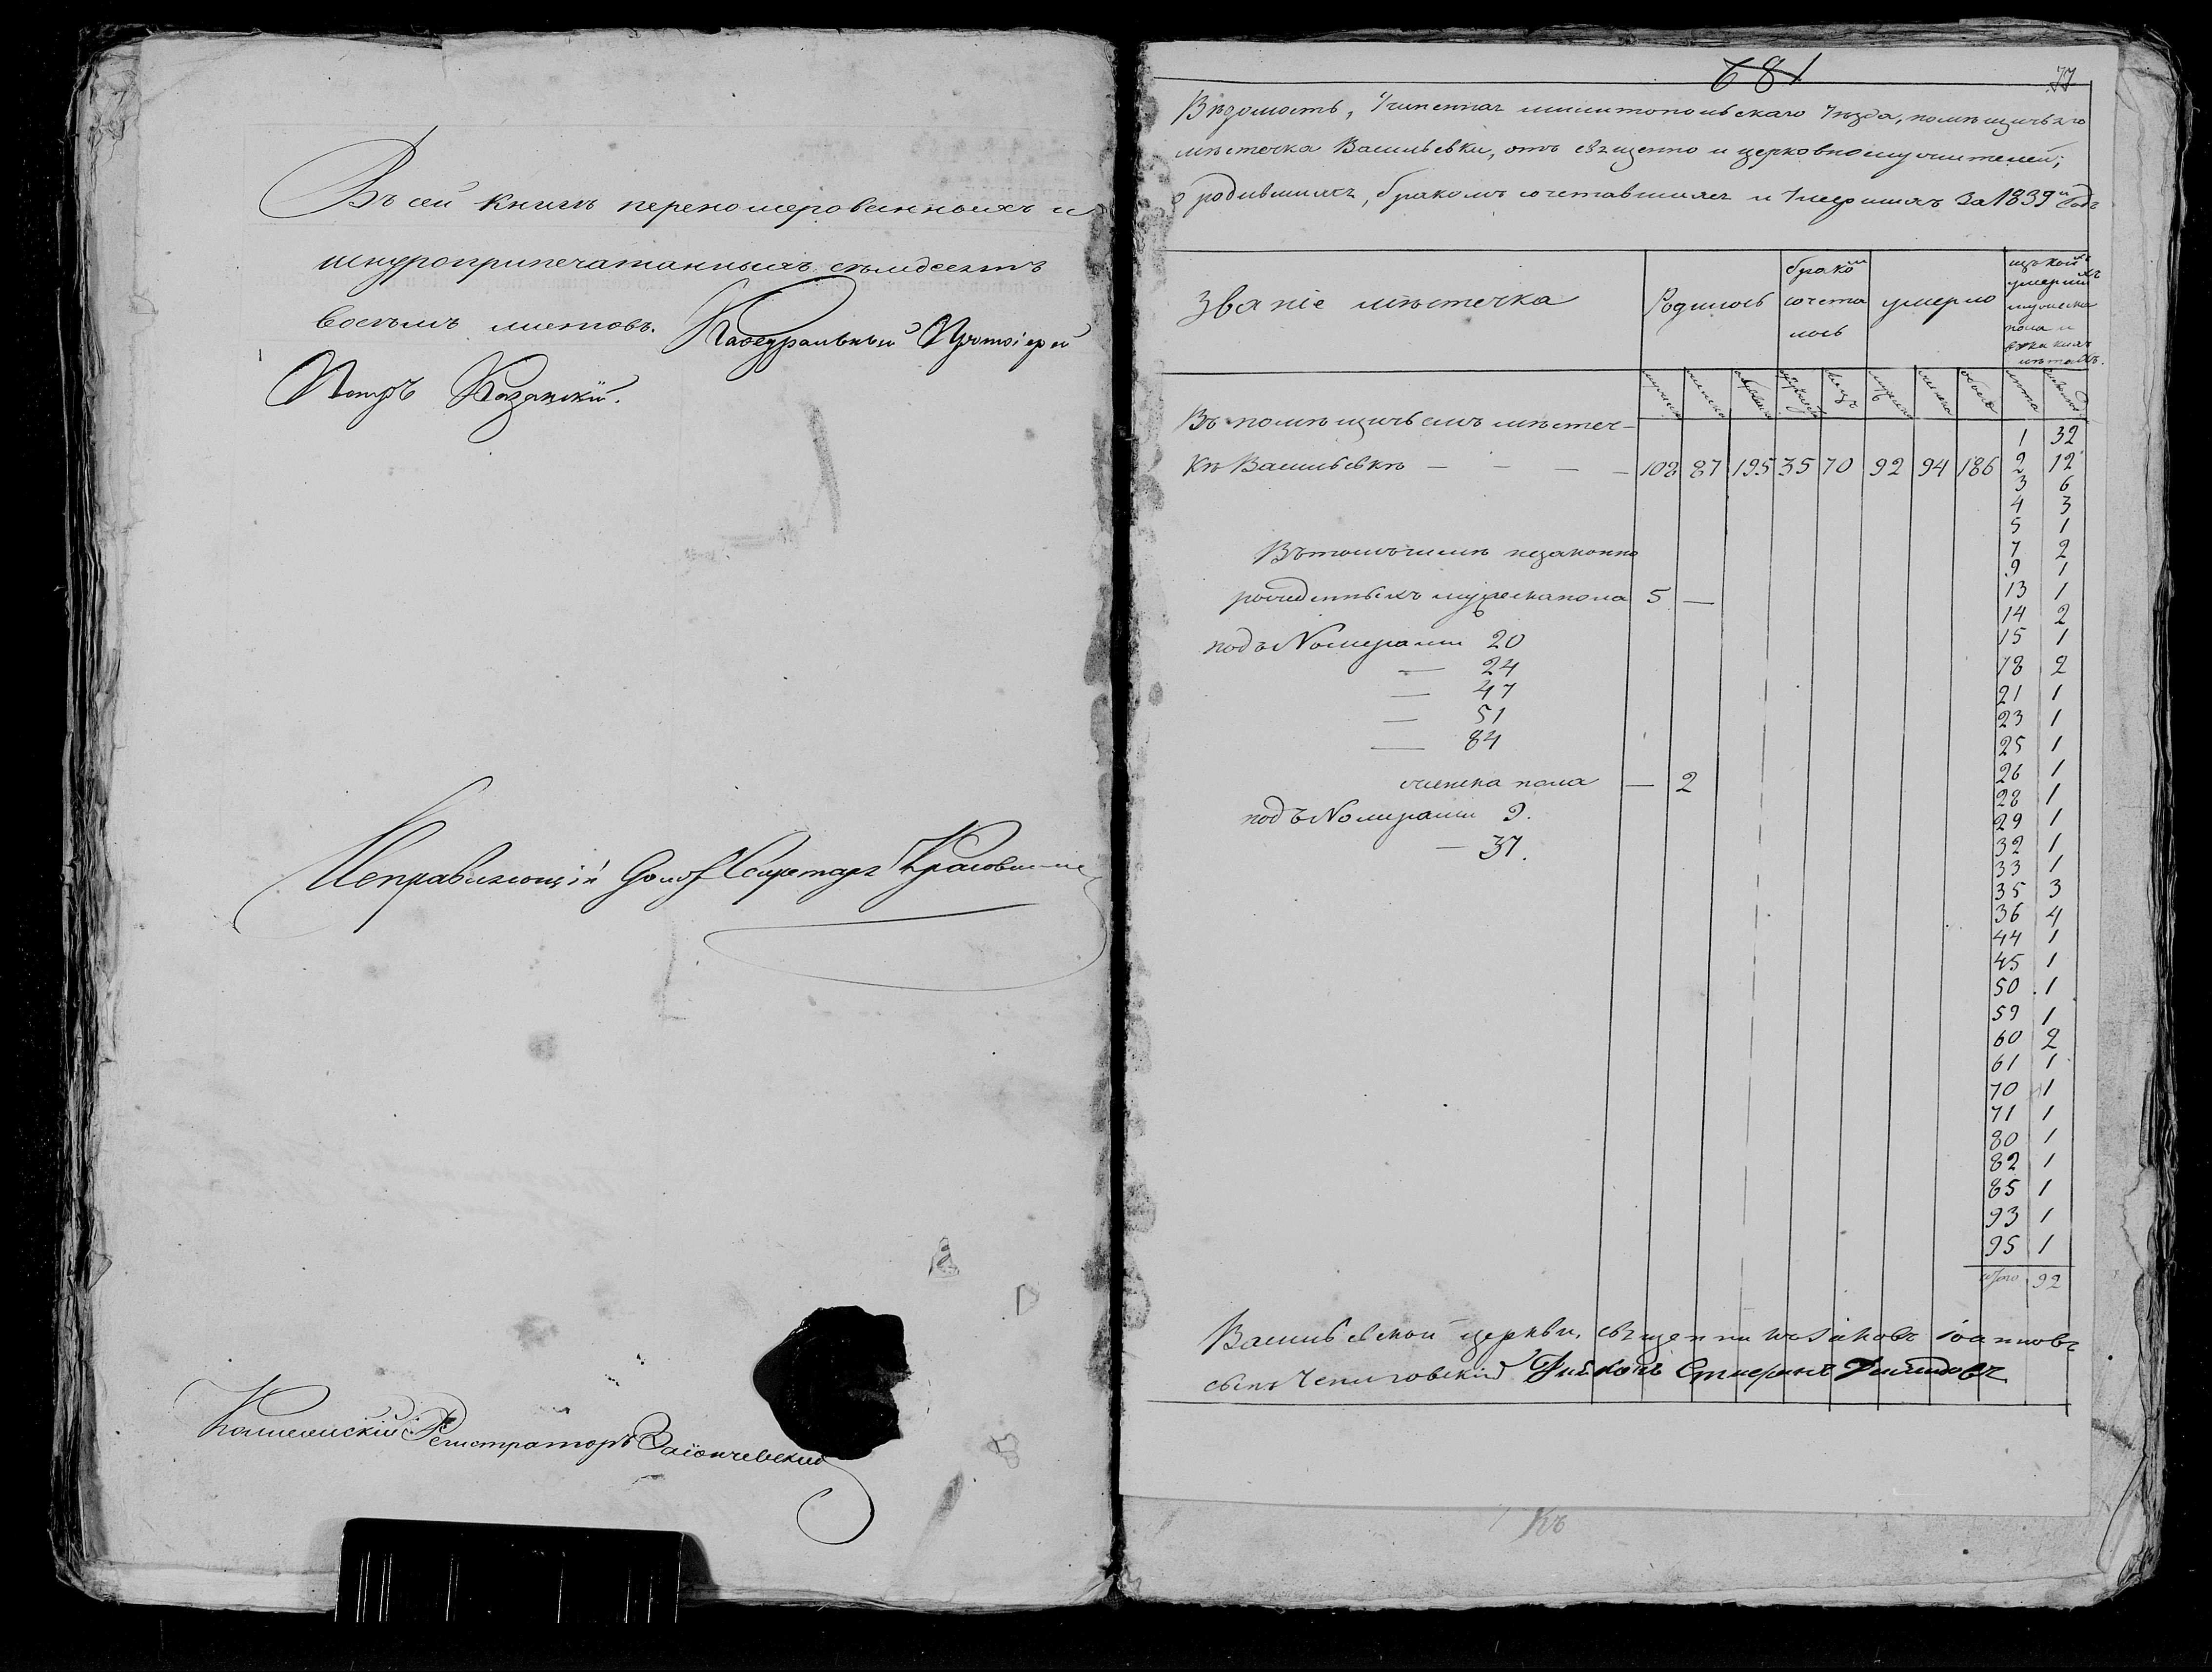 Въ сей книгѣ перенумерованныхъ и
шнуроприпечатанныхъ семдесятъ
восѣмъ листовъ. Каѳедральный Протоіерей
Петръ Казанскій.
Исправляющій Секретарь
Регистраторъ Заіончевский
681
77
Вѣдомость, Учиненная мелитопольскаго Уѣзда, помѣщичьяго
мѣстечка Васильевки, отъ священно и церковнослужителей;
о родившихся, бракомъ сочетавшихся и Умершихъ За 1839й Годъ
Званіе мѣстечка
Родилось
бракомъ
сочета
лось
умерло
пола и
лѣтахъ.
лѣта
Въ помѣщичьемъ мѣстеч-
кѣ Васильевкѣ — — — — 102 87 195 35 70 92 94 186
Въ томъ числѣ незаконно
рожденныхъ мужеска пола 5 —
подъ Номерами 20
— 24
— 47
— 51
— 84
женска пола — 2
подъ Номерами 9.
— 37.
1 32
2 12
3 6
4 3
5 1
7 2
9 1
13 1
14 2
15 1
18 2
21 1
23 1
25 1
26 1
28 1
29 1
32 1
33 1
35 3
36 4
44 1
45 1
50 1
59 1
60 2
61 1
70 1
71 1
80 1
82 1
85 1
93 1
95 1
итого 92
Васильевской церкви, священникъ Іаковъ Іоанновъ
сынъ Чепиговскій
Къ